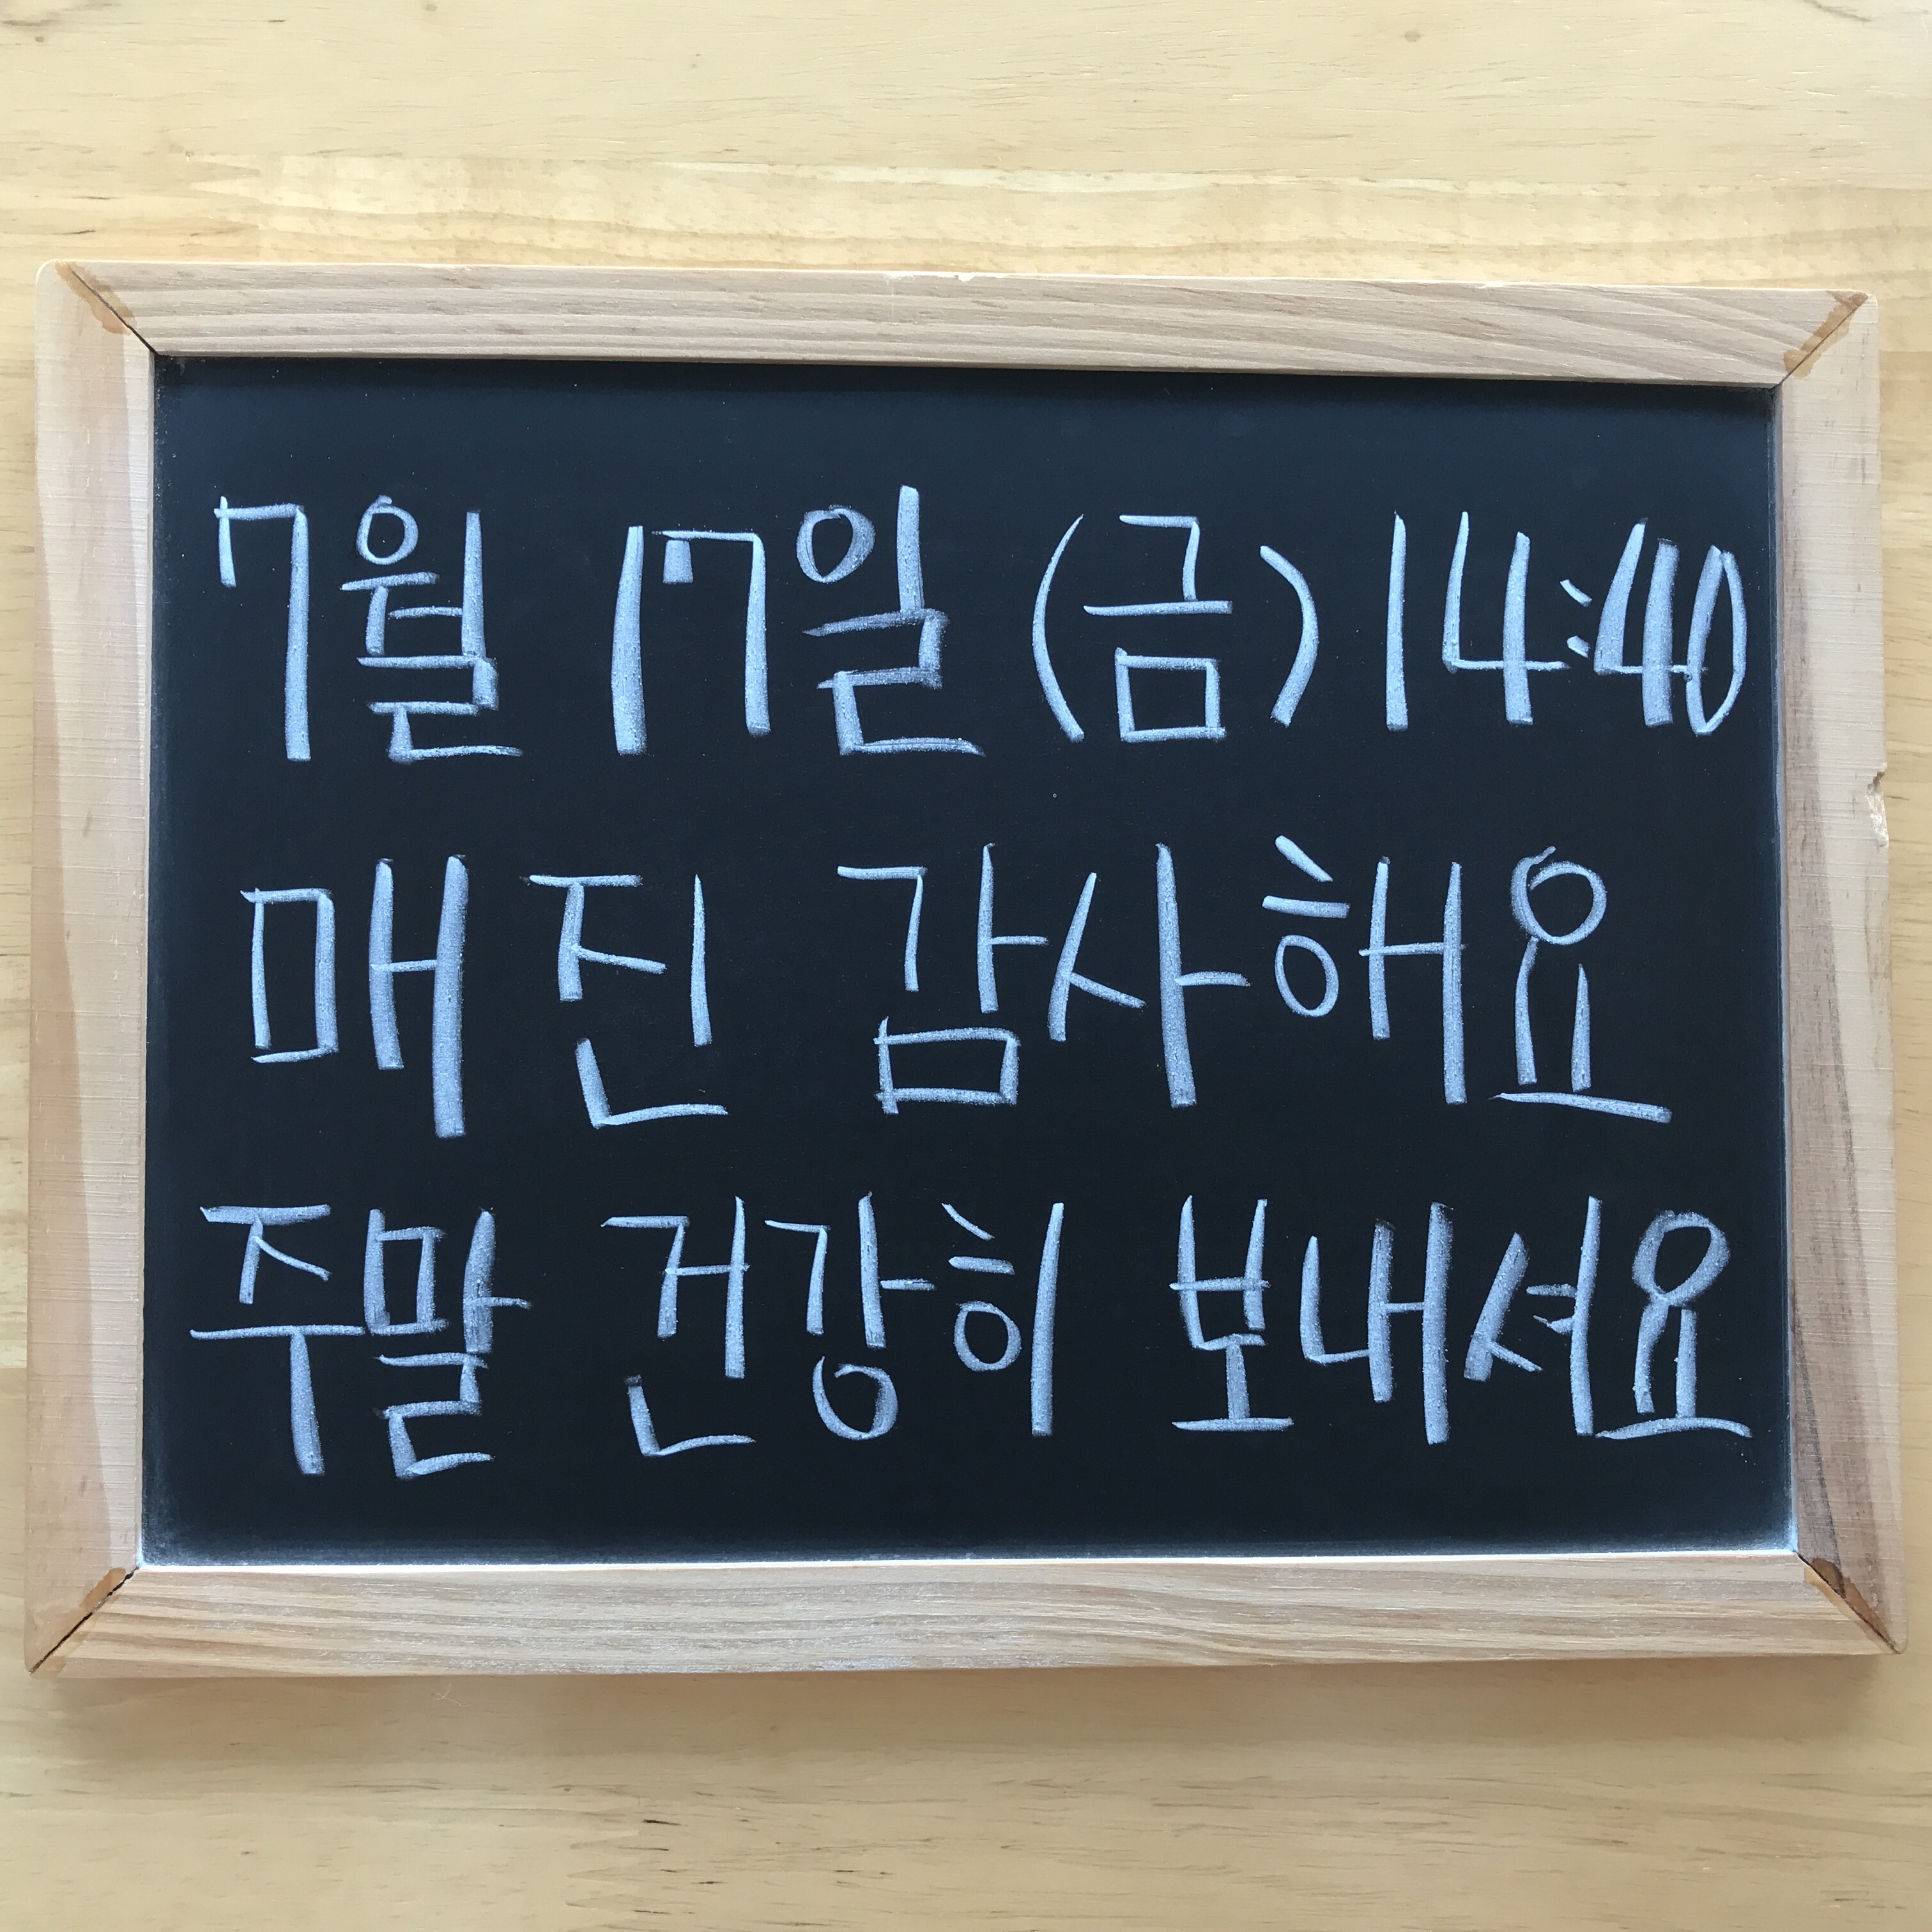 7월 17일 (금) 14:40
매진 감사해요
주말 건강히 보내셔요